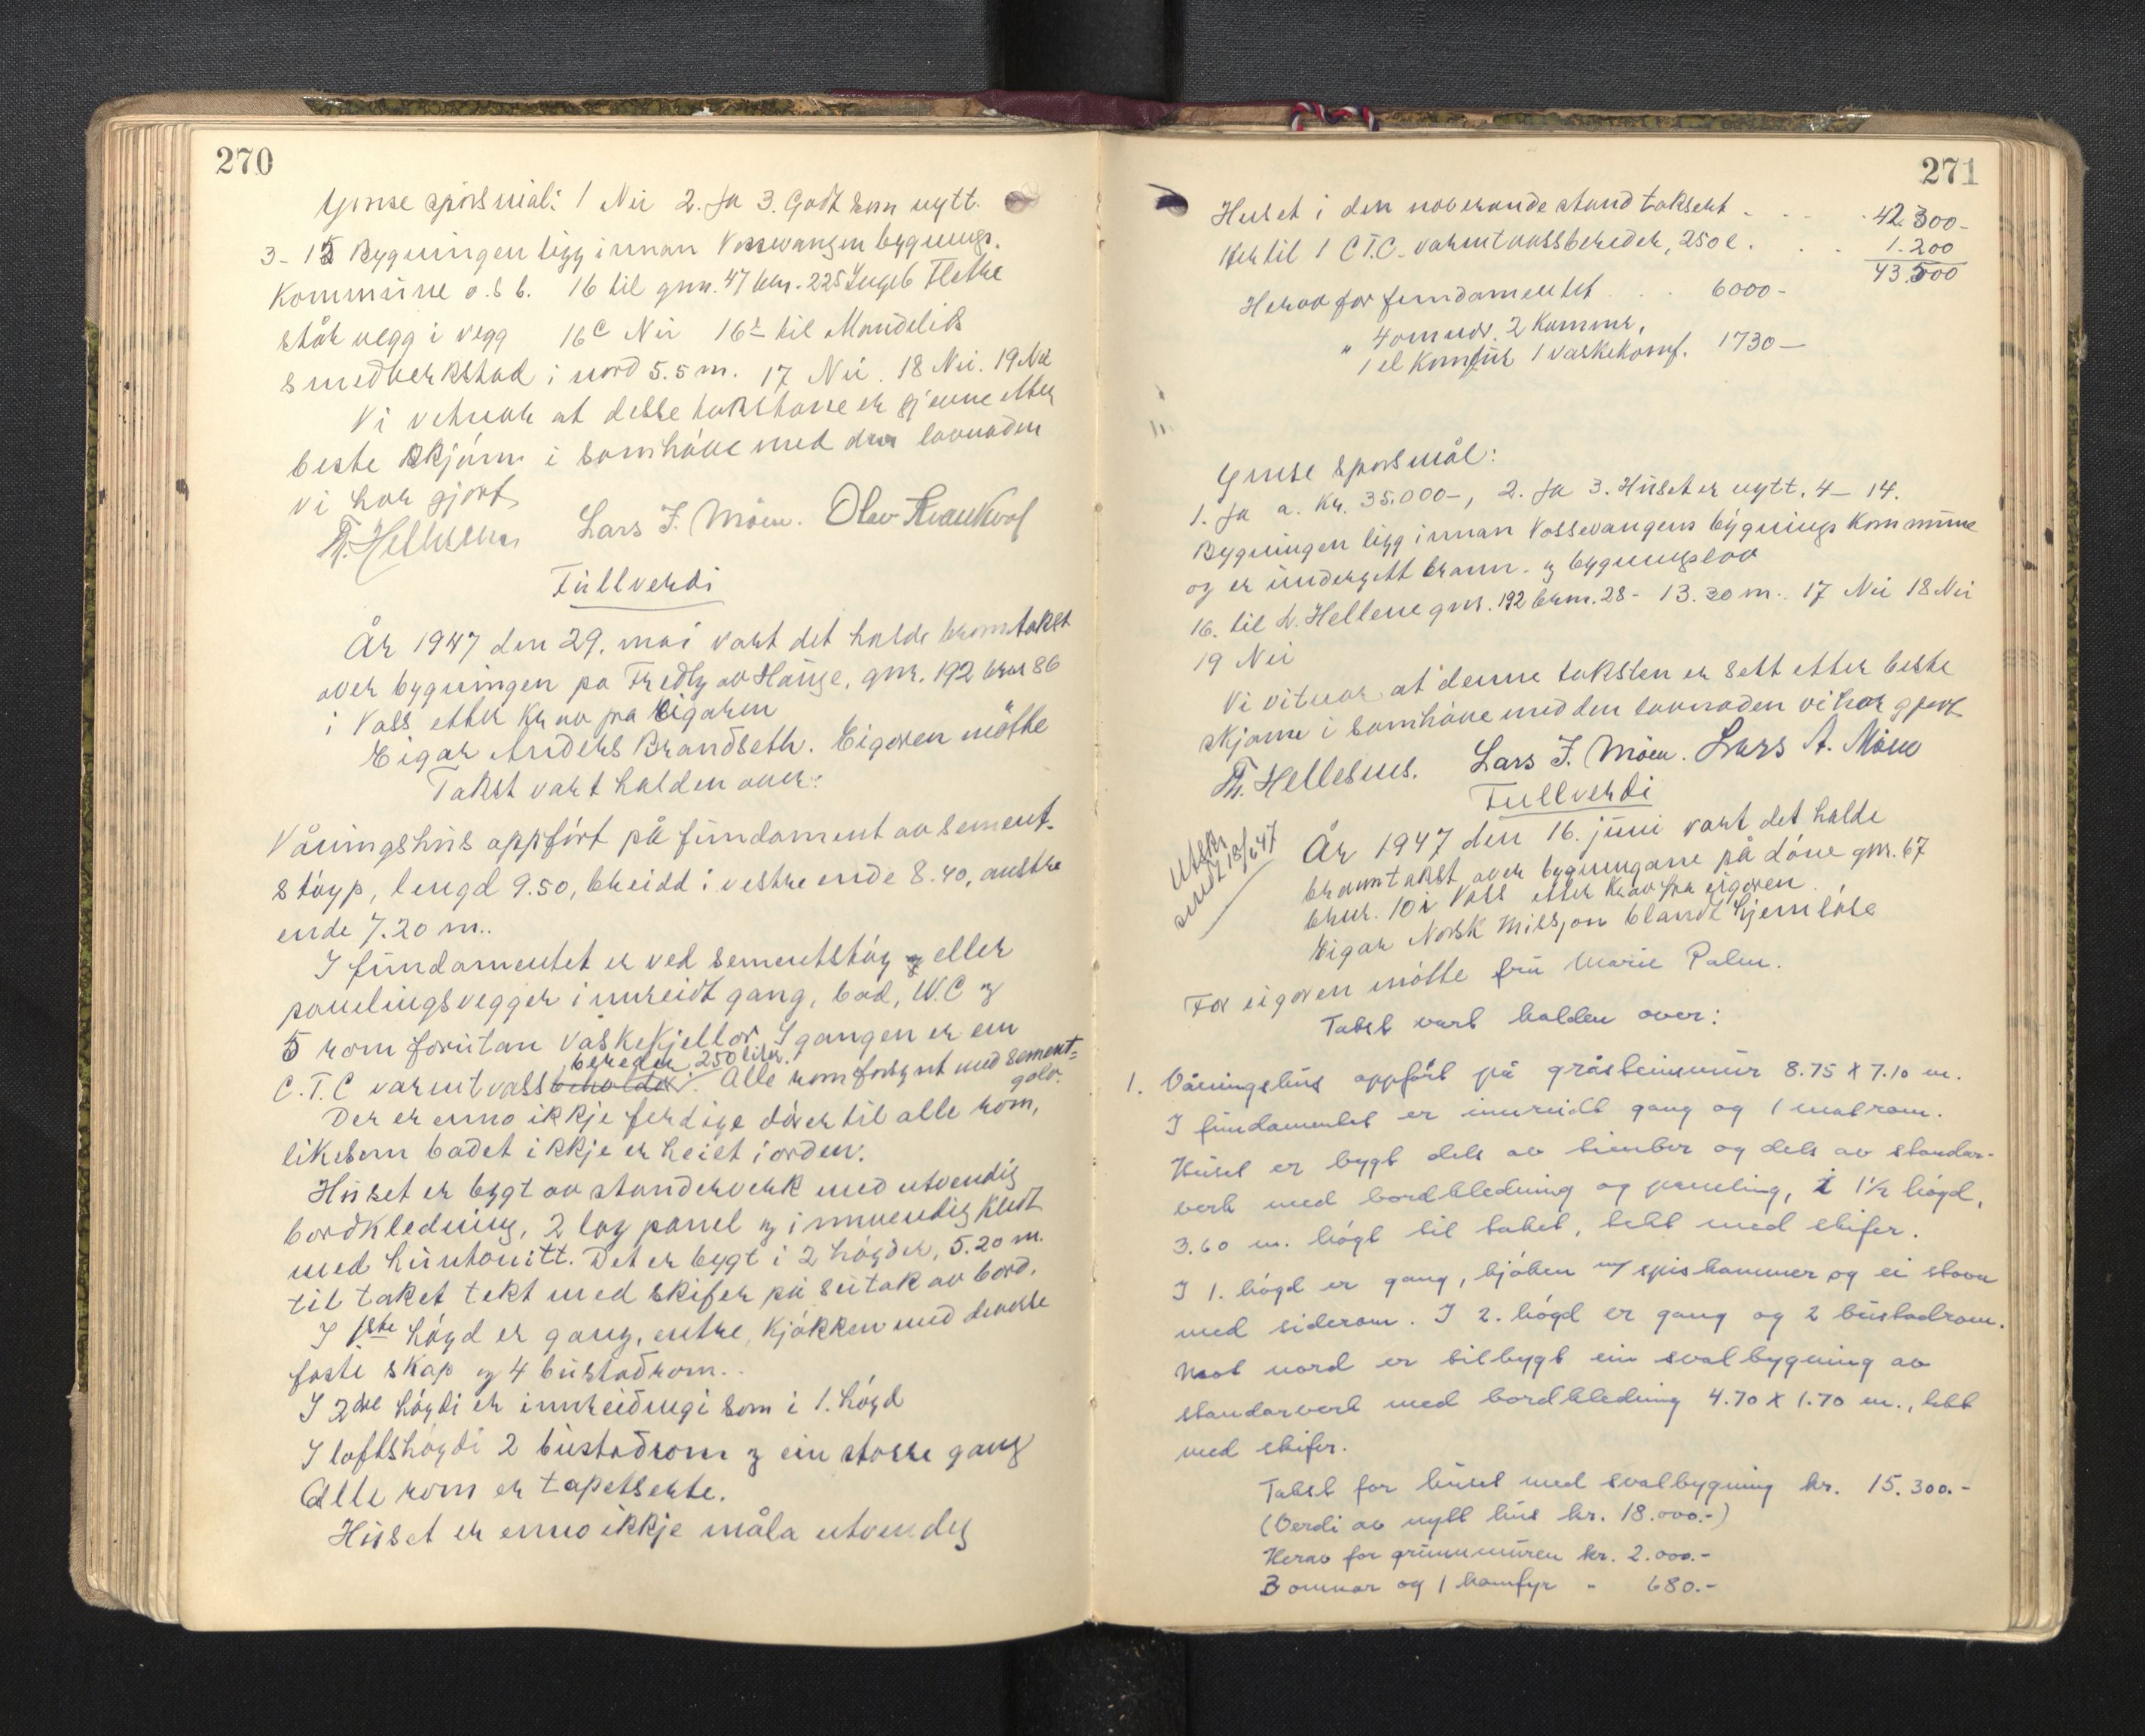 270
Ymse spörsmål: 1 Nei 2. Ja 3. Godt som nytt.
3-15 Bygningen ligg innan Vossevangen bygnings.
kommune o.s b. 16 til gnr. 47 bnr. 225 Ingeb Flette
står vegg i vegg 16c Nei 16 til Mandelids
smedverkstad i nord 5.5 m. 17 Nei. 18 Nei. 19 Nei
Vi vitnar at desse takstane er gjevne etter
beste skjönn i samhöve med den lovnaden
vi har gjort
Th. Hellesnes Lars J. Möen. Olav Kvarekval
Fullverdi
År 1947 den 29. mai vart det halde branntakst
over bygningen på Fredly av Hauge, gnr. 192 bnr 86
i Voss etter krav fra eigaren
Eigar Anders Brandseth. Eigaren mötte
Takst vart halden over:
Våningshus oppfört på fundament av sement-
stöyp, lengd 9.50, breidd i vestre ende 8.40, austre
ende 7.20 m..
I fundamentet er ved sementstöy og eller
panelingsvegger innreidt gang, bad, W.C og
5 rom forutan vaskekjellar. I gangen er ein
bereder 250 liter.
C.T.C varmtvassbeholder. Alle rom forsynt med sement-
golv.
Der er enno ikkje ferdige dörer til alle rom,
likesom badet ikkje er heiet i orden.
Huset er bygt av standerverk med utvendig
bordkledning, 2 lag panel og innvendig kledt
med huntonitt. Det er bygt i 2 högder, 5.20 m.
til taket tekt med skifer på sutak av bord.
I 1ste högd er gang, entre, kjökken med diverse
faste skap og 4 bustadrom..
I 2dre högdi er innreidingi som i 1. högd
I loftshögdi 2 bustadrom og ein större gang
Alle rom er tapetserte.
Huset er enno ikkje måla utvendig
271
Huset i den noverande stand taksert - . . . 42.300-
Her til 1 C.T.C. varmtvassbereder, 250 l. . . . 1.200
43.500
Herav for fundamentet . . . 6000-
" 4 omnar. 2 kammr,
1 el komfur 1 vaskekomf. 1730—
Ymse spörsmål:
1. Ja a. kr. 35.000-, 2. Ja 3. Huset er nytt. 4- 14.
Bygningen ligg innan Vossevangens bygnings kommune
og er undergitt brann- og bygningslov
16. til L. Hellene gnr. 192 brnr. 28- 13.30 m. 17 Nei 18 Nei
19 Nei
Vi vitnar at denne taksten er sett etter beste
skjönn i samhöve med den lovnaden vi har gjevt
Th. Hellesnes. Lars J. Möen. Lars A. Möen
Fullverdi
Utskr
send 18/6 47
År 1947 den 16. juni vart det halde
branntakst over bygningane på Löne gnr. 67
brnr. 10 i Voss etter krav fra eigaren.
Eigar Norsk Misjon blandt hjemlöse
For eigaren mötte fru Marie Palm.
Takst vart halden over:
1. Våningshus oppfört på gråsteinsmur 8.75 x 7.10 m.
I fundamentet er innreidt gang og 1 matrom.
Huset er bygt dels av timber og dels av standar-
verk med bordkledning og paneling, i 1½ högd,
3.60 m. högt til taket, tekt med skifer.
I 1. högd er gang, kjöken m/ spiskammer og ei stova
med siderom. I 2. högd er gang og 2 bustadrom.
Mot nord er tilbygt ein svalbygning av
standarverk med bordkledning 4.70 x 1.70 m., tekt
med skifer.
Takst for huset med svalbygning kr. 15.300.-
(Verdi av nytt hus kr. 18.000.-)
Herav for grunnmuren kr. 2.000.-
3 omnar og 1 komfyr - 680.-